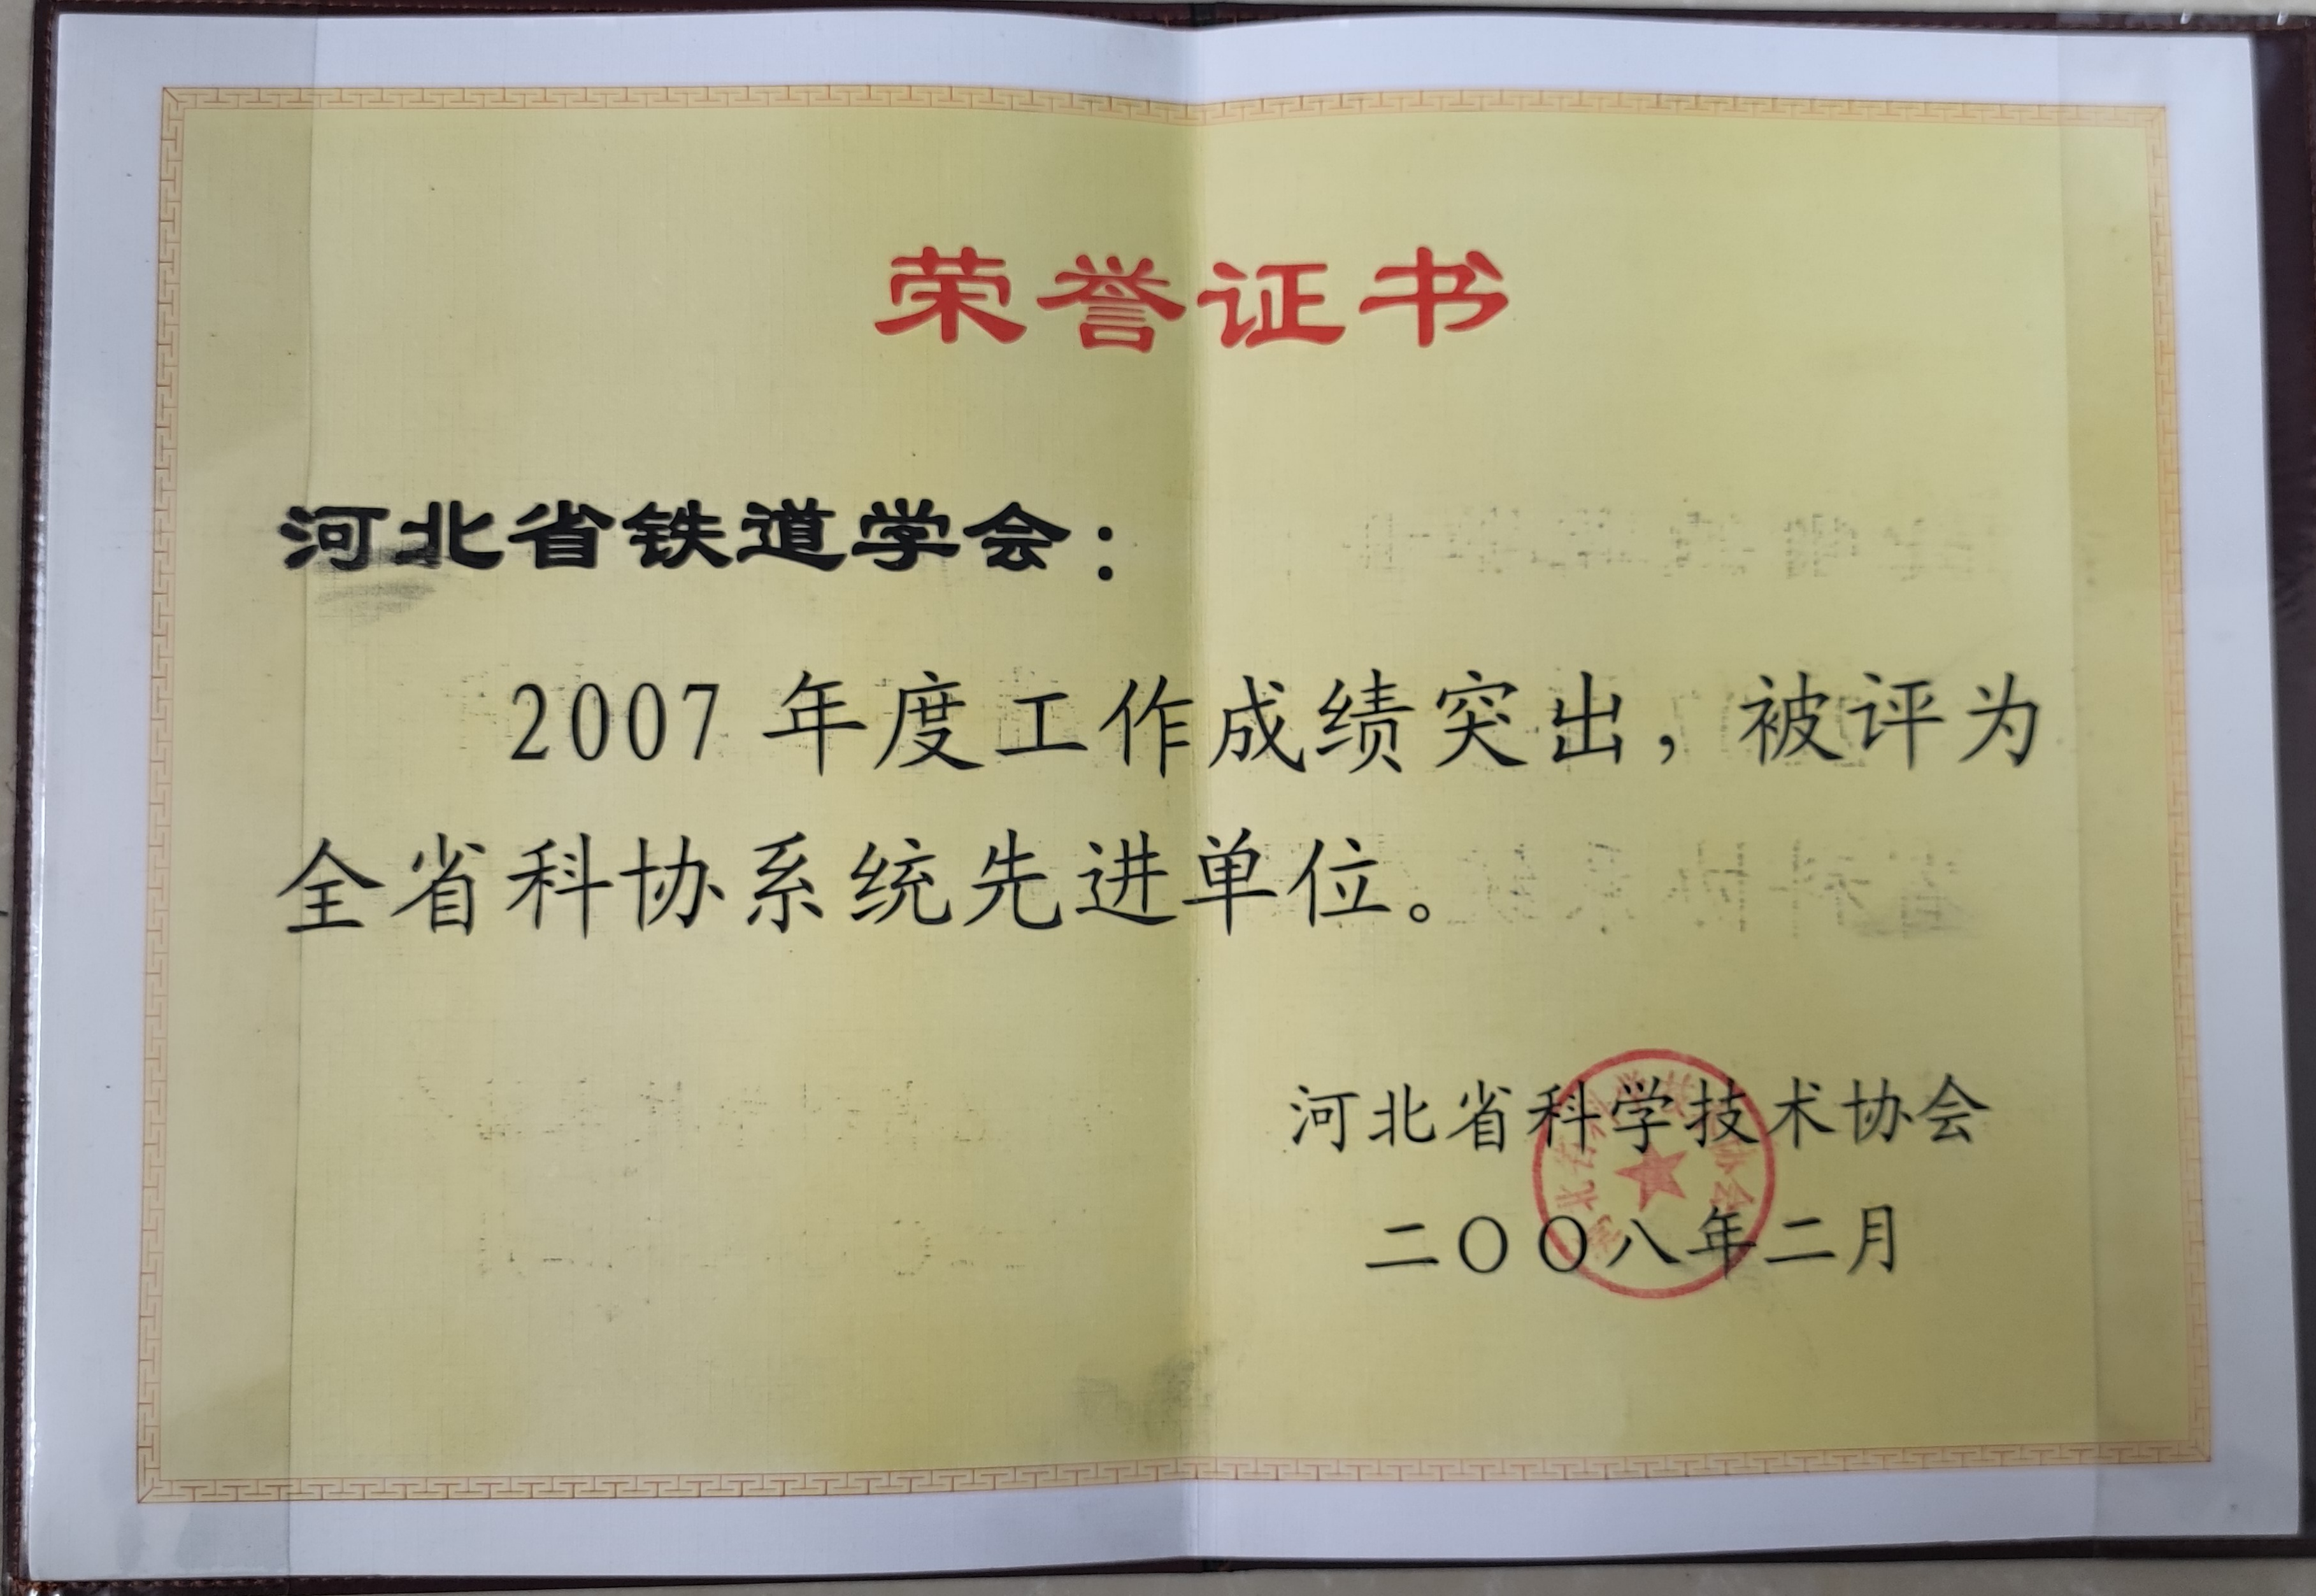 荣誉证书
河北省铁道学会：
2007年度工作成绩突出，被评为
全省科协系统先进单位。
河北省科学技术协会
二〇〇八年二月